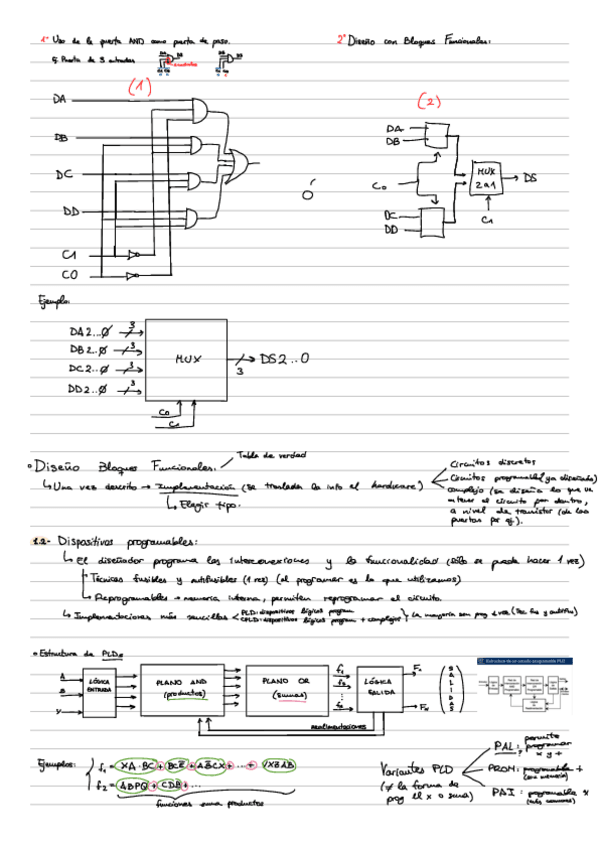 1º Uso de la puerta AND como puerta de paso.
2º Diseño con Bloques Funcionales:
Puerta de 3 entradas
(1)
(2)
DA
DB
DC
DD
C1
C0
ó
DA
DB
C0
DC
DD
MUX
2a1
DS
C1
Ejemplo:
DA2..0 3
DB2..0 3
DC2..0 3
DD2..0 3
MUX
DS2..0
3
C0
C1
• Diseño Bloques Funcionales.
Tabla de verdad
↳ Una vez descrito → Implementación (se traslada la info al hardware)
↳ Elegir tipo.
Circuitos discretos
Circuitos programable (ya diseñado)
complejo (se diseña lo que va
a nivel de transistor (de las
1.2- Dispositivos programables:
↳ El diseñador programa las interconexiones y la funcionalidad (sólo se puede hacer 1 vez)
Técnicas fusibles y antifusibles (1 vez) (al programar es la que utilizamos)
↳ Reprogramables → memoria interna, permiten reprogramar el circuito.
↳ Implementaciones más sencillas
PLD: dispositivos lógicos program
CPLD: dispositivos lógicos program + complejos
• Estructura de PLDs
A
B
LÓGICA
ENTRADA
PLANO AND
(productos)
PLANO OR
(sumas)
f1
f2
LÓGICA
SALIDA
SALIDAS
realimentaciones
Estructura de un circuito programable PLD
Ejemplos:
f1 = XA·BC + BCE + ABCX + ... +
f2 = ABPQ + CDB + ...
funciones suma productos
Variantes PLD
(≠ la forma de
prog el x o suma)
PAL: permite
programar
x y +
PROM: programable +
PAI: programable x